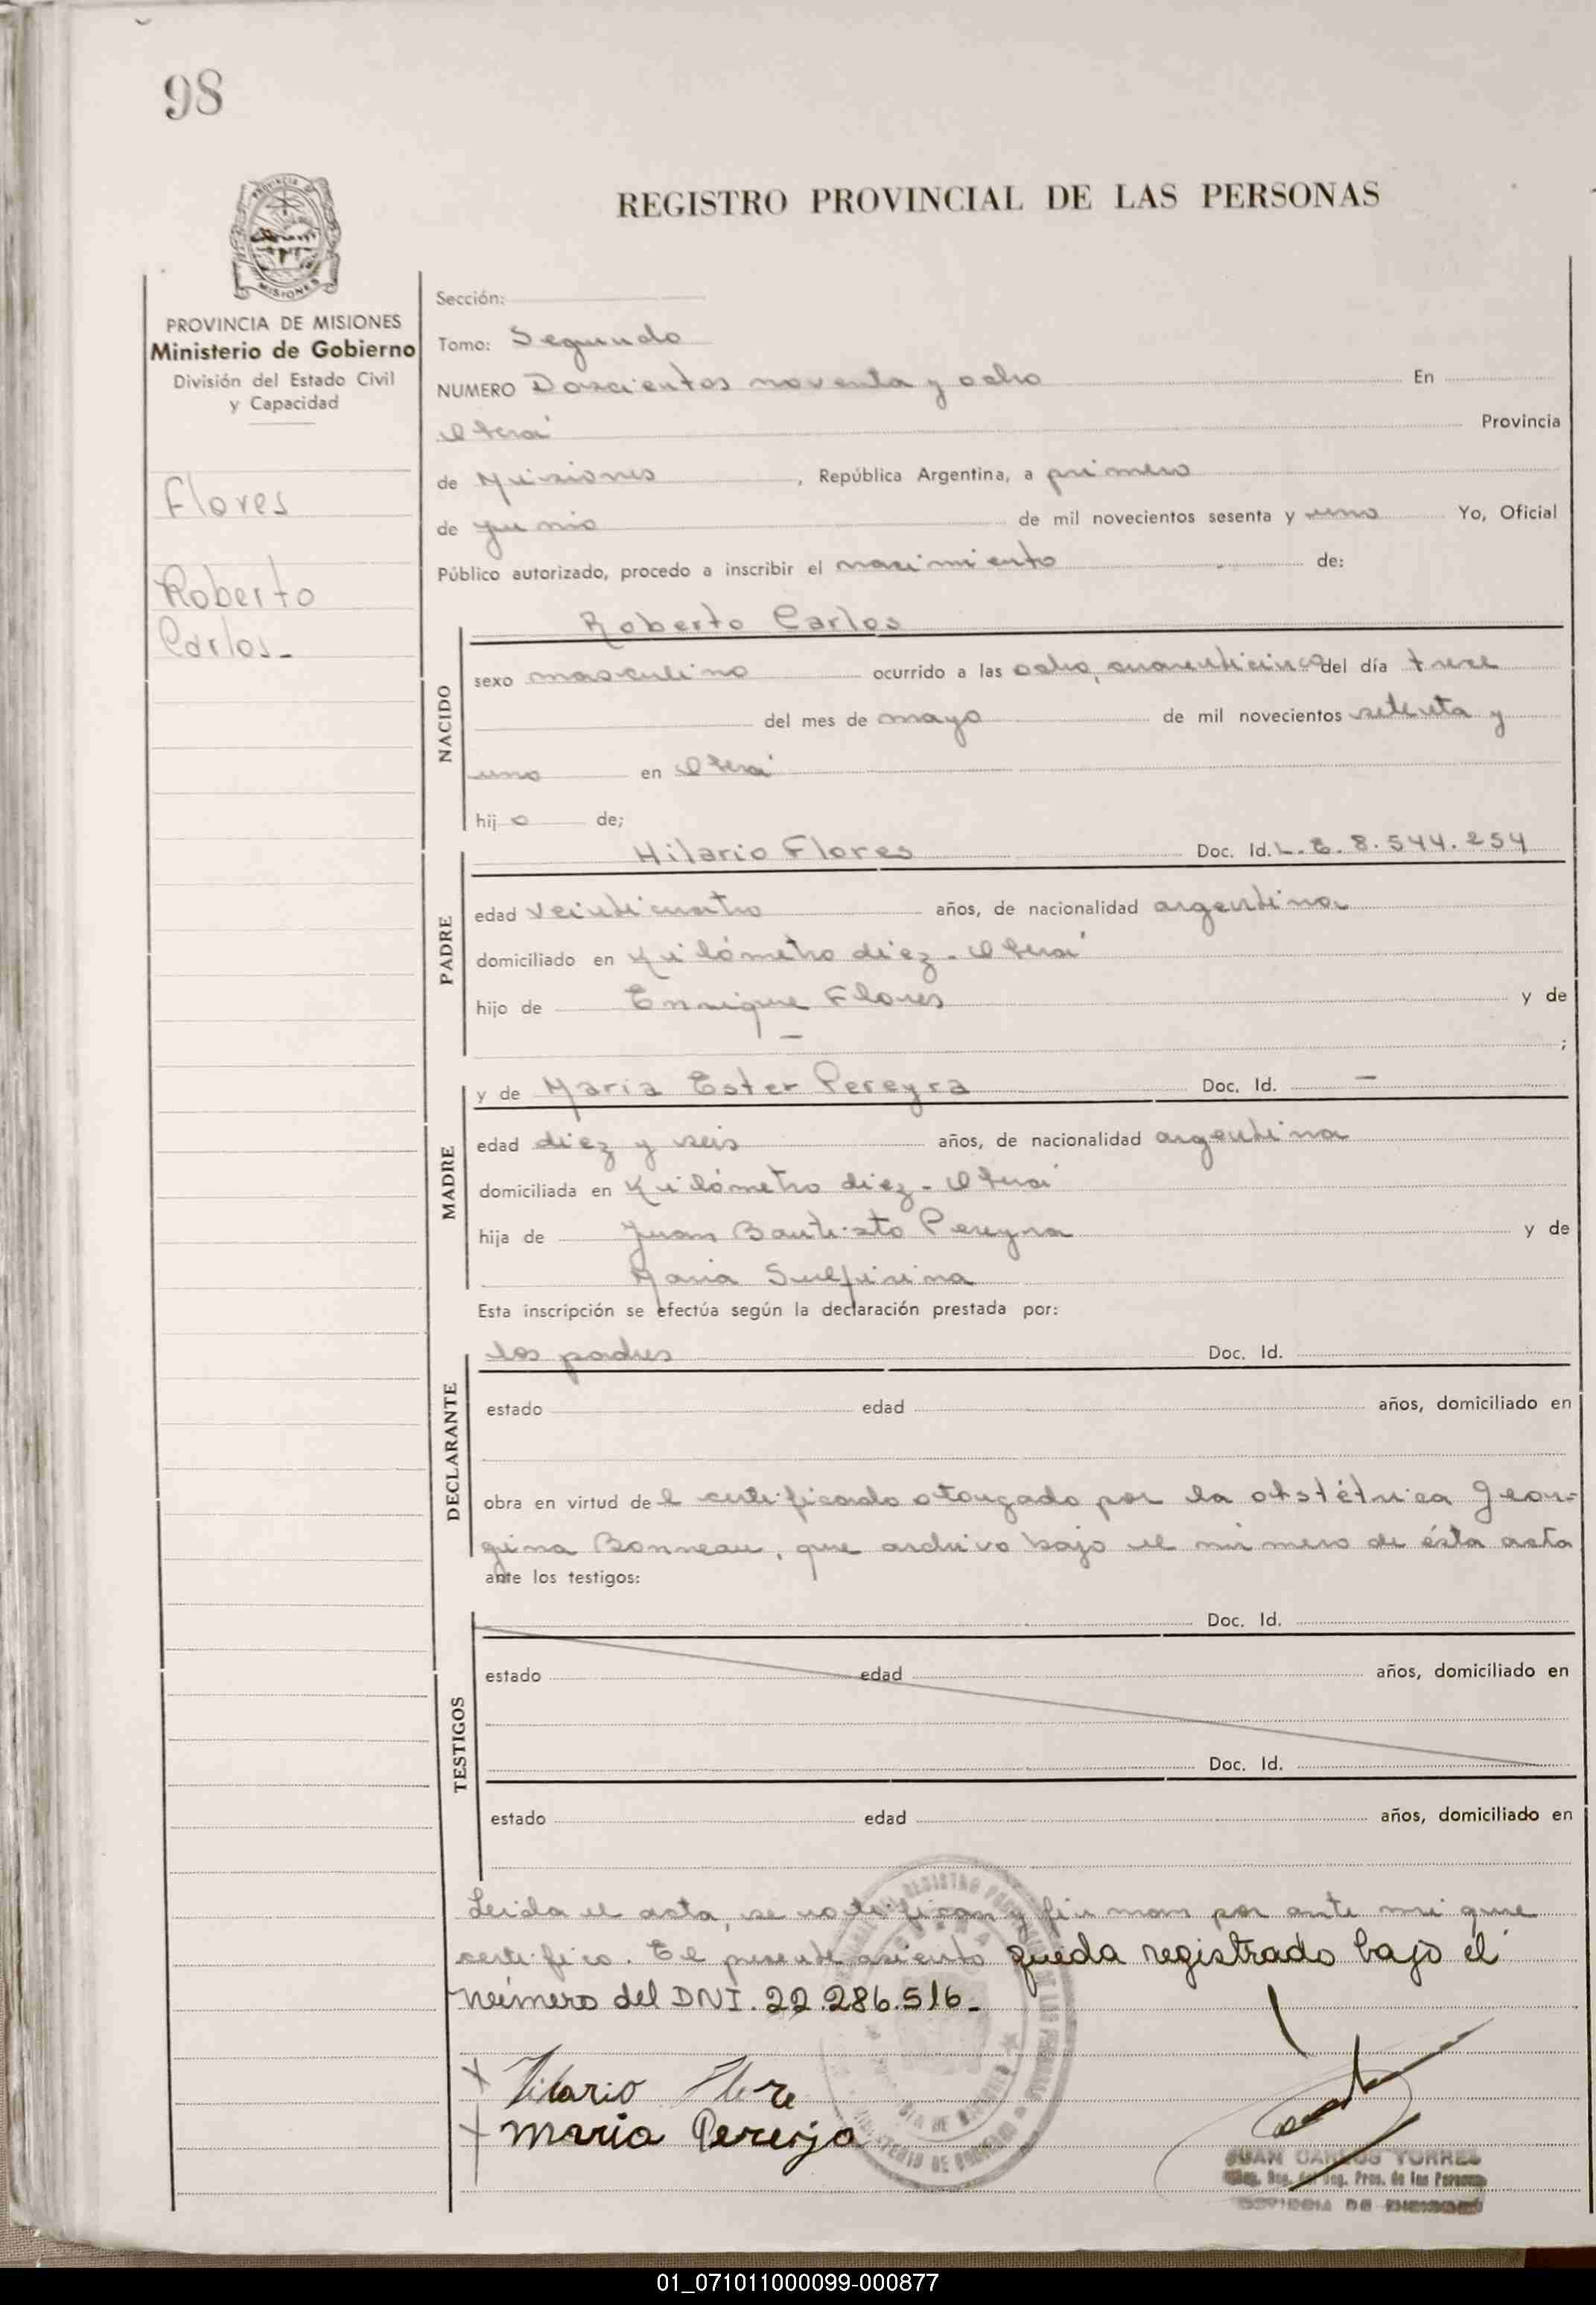 98
REGISTRO PROVINCIAL DE LAS PERSONAS
PROVINCIA DE
MISIONES
PROVINCIA DE MISIONES
Ministerio de Gobierno
División del Estado Civil
y Capacidad
Flores
Roberto
Carlos-
Sección:
Tomo: Segundo
NUMERO Doscientos noventa y ocho En
Oberá Provincia
de Misiones, República Argentina, a primero
de junio de mil novecientos sesenta y uno Yo, Oficial
Público autorizado, procedo a inscribir el nacimiento de:
NACIDO
Roberto Carlos
sexo masculino ocurrido a las ocho, cuarenticinco del día trece
del mes de mayo de mil novecientos setenta y
uno en Oberá
hijo de;
PADRE
Hilario Flores Doc. Id. L.E. 8.544.254
edad veinticuatro años, de nacionalidad argentina
domiciliado en Kilómetro diez - Oberá
hijo de Enrique Flores y de
— ;
MADRE
y de Maria Ester Pereyra Doc. Id. —
edad diez y seis años, de nacionalidad argentina
domiciliada en Kilómetro diez - Oberá
hija de Juan Bautista Pereyra y de
Maria Sulfirina
Esta inscripción se efectúa según la declaración prestada por:
DECLARANTE
los padres Doc. Id.
estado edad años, domiciliado en
obra en virtud del certificado otorgado por la obstétrica Geor=
gina Bonneau, que archivo bajo el número de ésta acta
ante los testigos:
TESTIGOS
Doc. Id.
estado edad años, domiciliado en
Doc. Id.
estado edad años, domiciliado en
Leída el acta, se notifican y firman por ante mi que
certifico. El presente asiento queda registrado bajo el
número del DNI. 22.286.516-
x Hilario Flore
x Maria Pereyra
JUAN CARLOS TORRES
Reg. Prov. de las Personas
PROVINCIA DE MISIONES
01_071011000099-000877